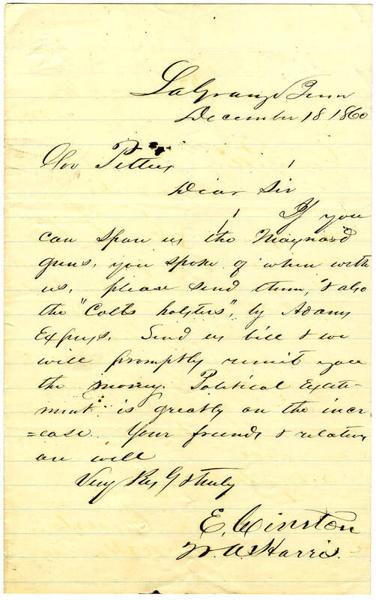 LaGrange Tenn
December 18 1860
Gov Pettus
Dear Sir
If you
can span us the Maynard
guns, you spoke of when with
us, please send them, & also
the "Colts holsters", by Adams
Express. Send us bill & we
will promptly remit you
the money. Political Excite-
ment is greatly on the incr
=ease. Your friends & relatives
are well
Very Res & truly
E. Winston
W. A. Harris.